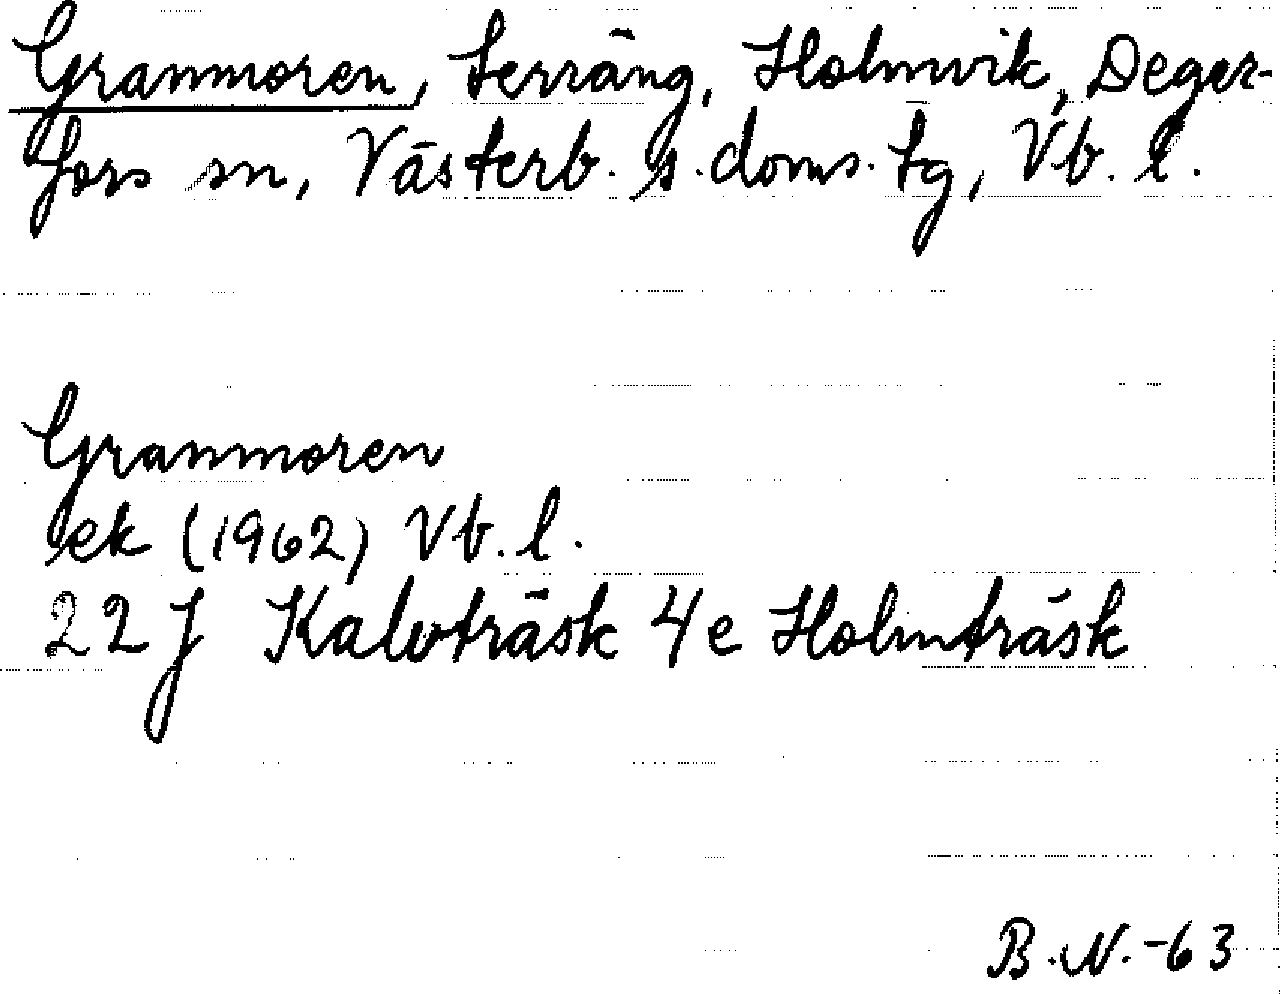 Granmoren, terräng, Holmvik, Deger-
fors sn, Västerb. s. doms. tg, Vb. l.
Granmoren
ek (1962) Vb. l.
22 J Kalvträsk 4 e Holmträsk
B. N. -63